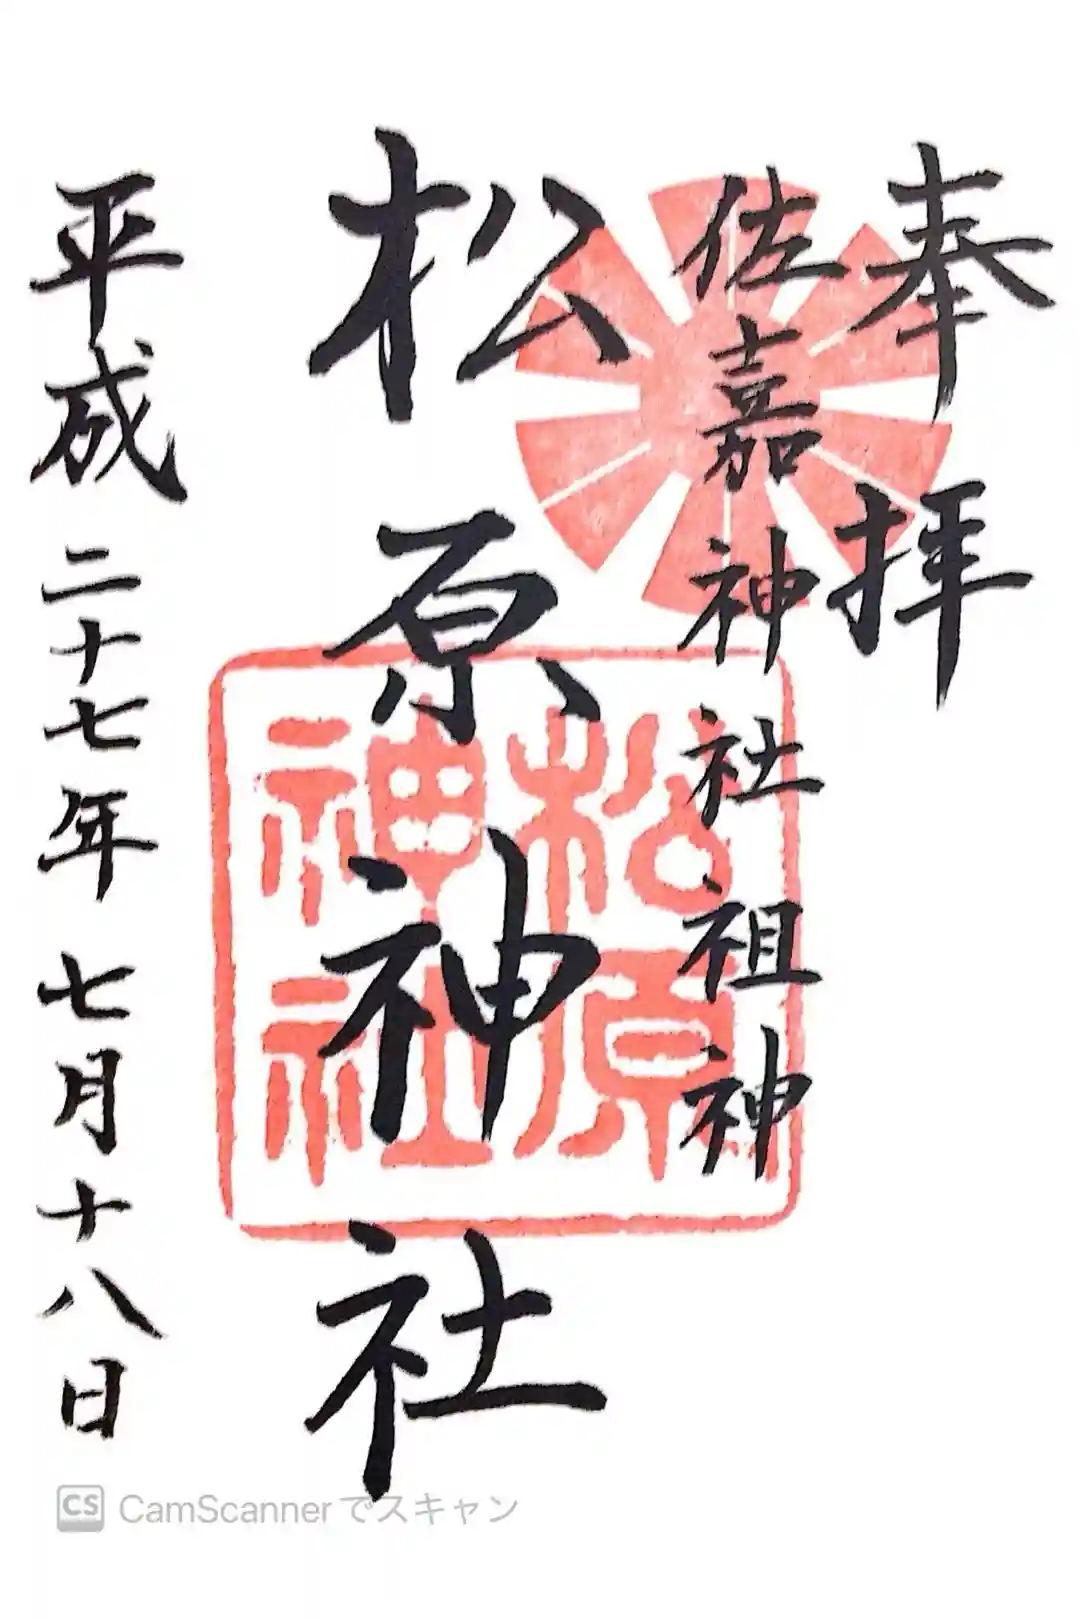 奉拝
佐嘉神社祖神
松原神社
平成二十七年七月十八日
松原
神社
CS CamScannerでスキャン